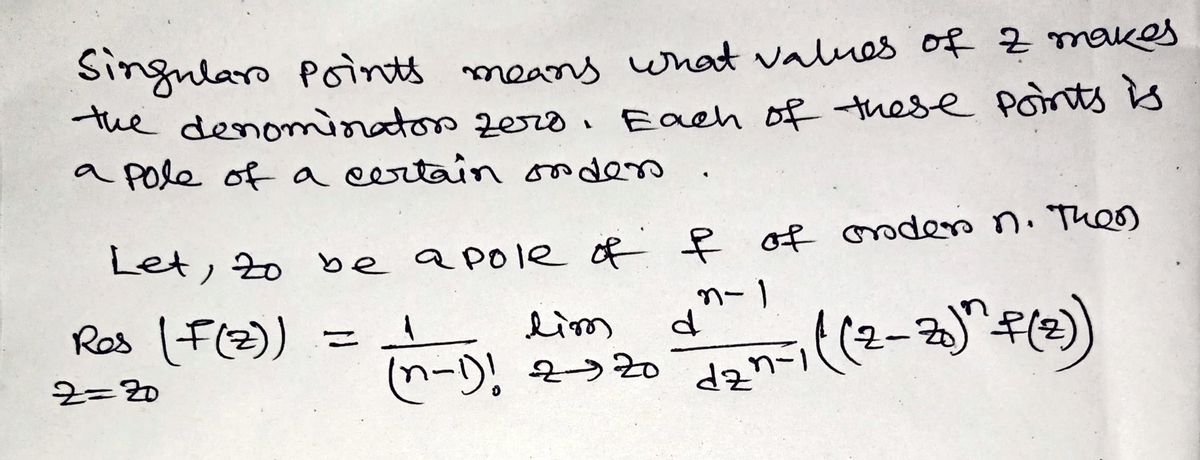 Singular points means what values of z makes
the denominator zero. Each of these points is
a pole of a certain order.
Let, z0 be a pole of f of order n. Then
Res (f(z)) = 1/(n-1)! lim d^n-1/dz^n-1 ((z-z0)^n f(z))
z=z0 z→z0